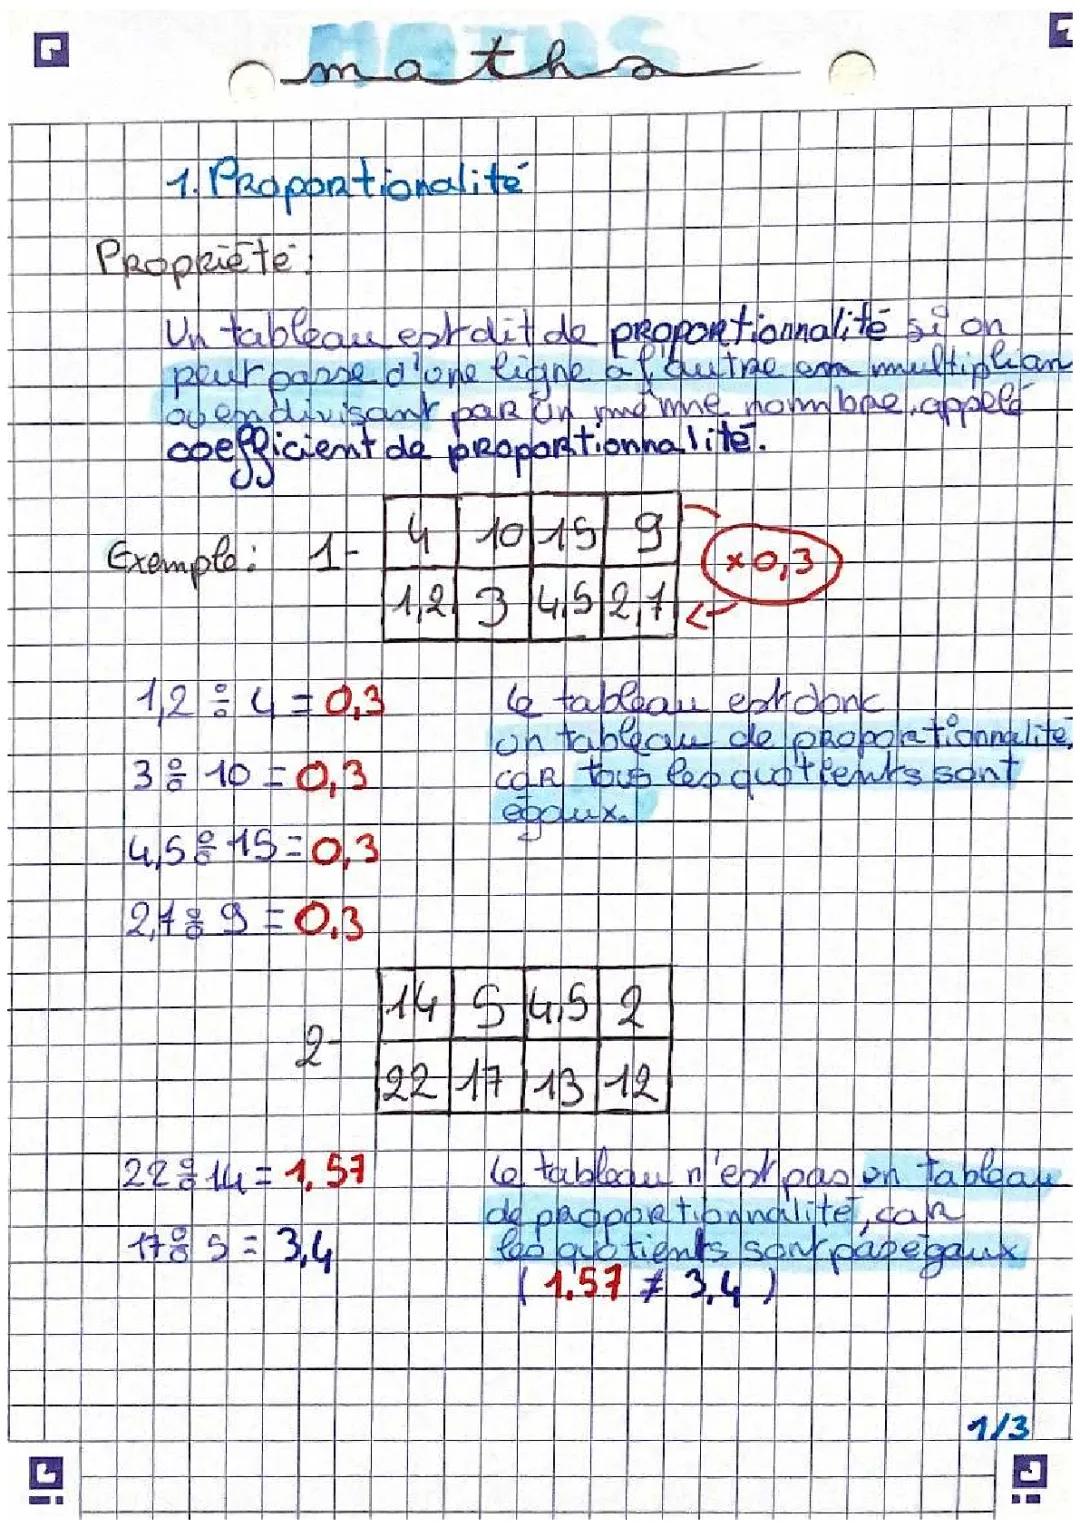 maths
1. Proportionalité
Propriété:
Un tableau est dit de proportionnalité si on
peut passe d'une ligne à l'autre en multiplian
ou en divisant par un même nombre, appelé
coefficient de proportionnalité.
Exemple: 1-
4 10 15 9
×0,3
1,2 3 4,5 2,7
1,2 ÷ 4 = 0,3
le tableau est donc
un tableau de proportionnalité,
3 ÷ 10 = 0,3
car tous les quotients sont
égaux.
4,5 ÷ 15 = 0,3
2,7 ÷ 9 = 0,3
2-
14 5 4,5 2
22 17 13 12
22 ÷ 14 = 1,57
le tableau n'est pas un tableau
de proportionnalité, car
17 ÷ 5 = 3,4
les quotients sont pas égaux
(1.57 ≠ 3,4)
1/3